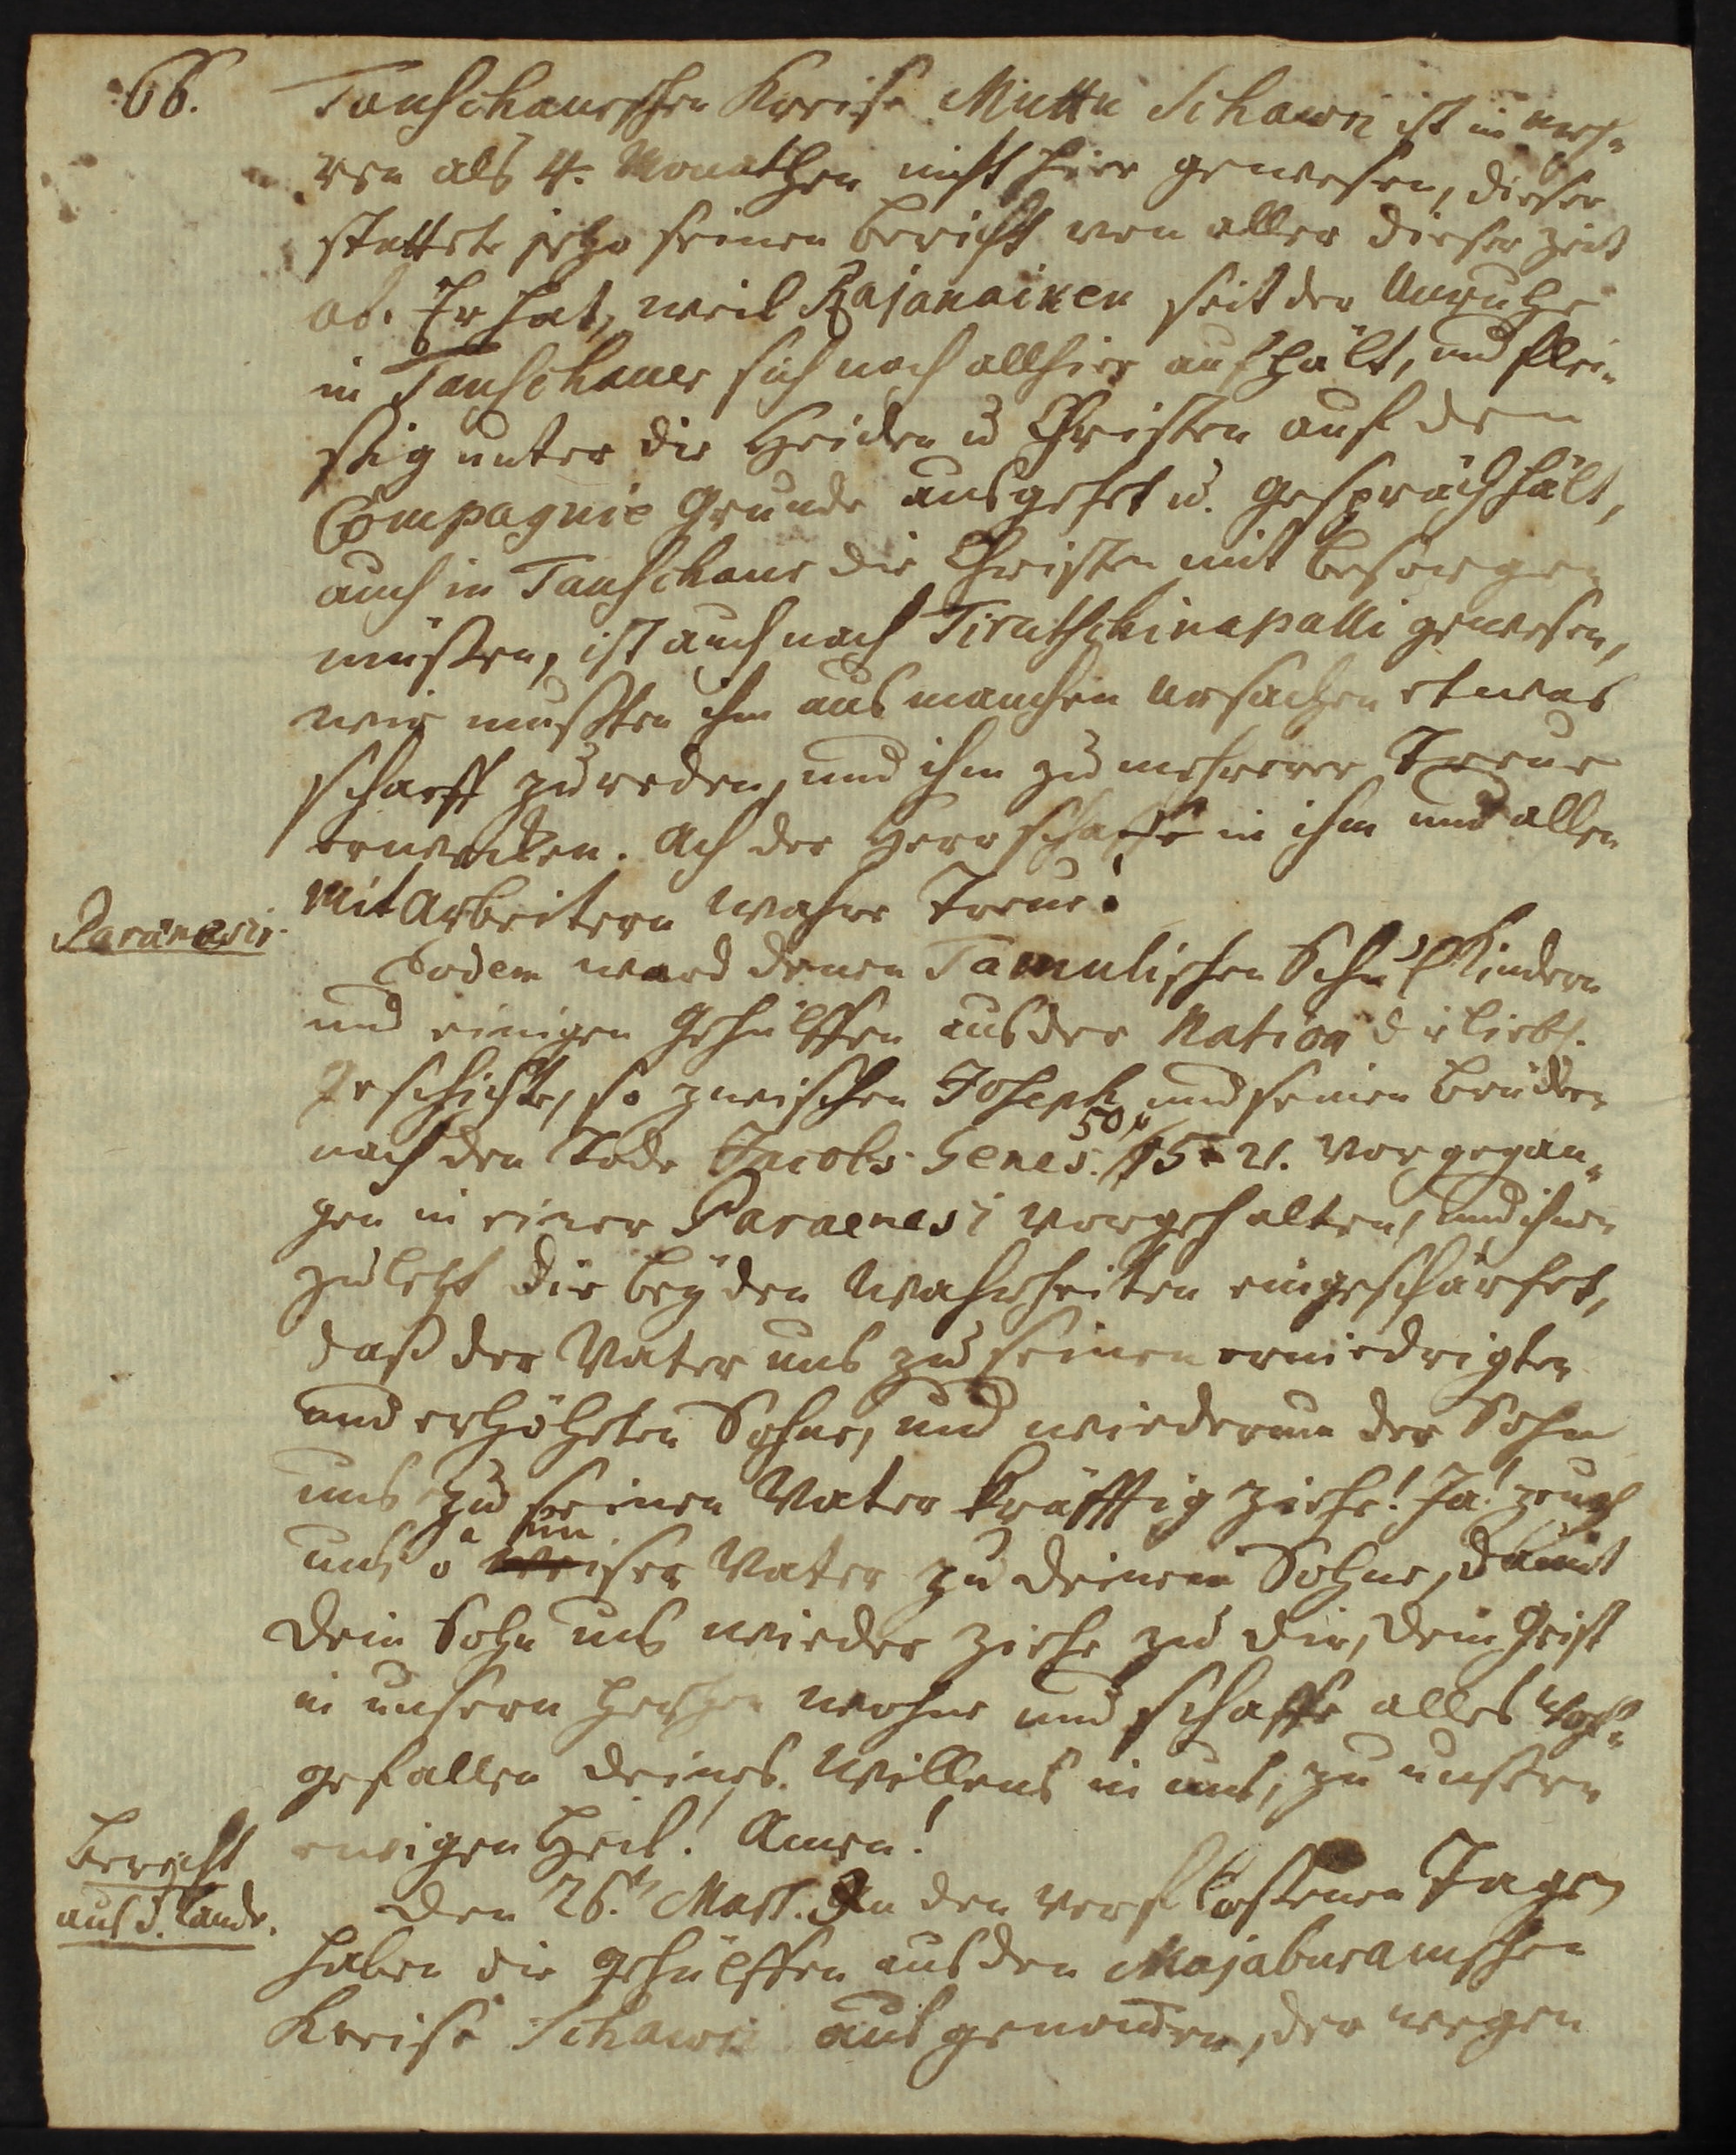 66.
Tanschaurschen Kreise Muttu Schawri ist in meh-
ren als 4. Monathen nicht hier gewesen, dieser
stattete jetzo seinen Bericht von aller dieser Zeit
ab. Er hat, weil Rajanaiken seit der Unruhe
in Tanschauer sich noch allhier aufhält, und flei-
ßig unter die Heiden u Christen auf dem
Compagnie Grunde ausgehet u. Gespräch hält,
auch in Tanschaur die Christen mit besorgen
müßen, ist auch nach Tirutschinapalli gewesen,
wir mußten ihm aus manchen Ursachen etwas
scharff zureden, und ihn zu mehrerer Treue
erwecken. Ach der Herr schaffe in ihm und allen
Mit Arbeitern wahre Treue!
Paränesis.
Eodem ward denen Tamulischen SchulKindern
und einigen Gehülffen aus der Nation die liebl.
Geschichte, so zwischen Joseph und seinen Brüdern
nach den Tode Jacobs Genes. 50, 15-21. vorgegan-
gen in einer Paraenesi vorgehalten, und ihnen
zuletzt die beyden Wahrheiten eingeschärfet,
daß der Vater uns zu seinen erniedrigten
und erhöheten Sohne, und wiederum der Sohn
uns zu seinen Vater kräfftig ziehe! Ja! zeuch
uns o Vater zu deinem Sohne, damit
dein Sohn uns wieder ziehe zu dir, dein Geist
in unsern Hertzen wohne und schaffe alles Wohl-
gefallen deines Willens in uns, zu unsern
ewigen Heil! Amen!
Bericht
aus d. Lande.
Den 26.t Mart. In den verfloßenen Tagen
haben die Gehülffen aus den Majaburamschen
Kreise Schawri ausgenommen, der wegen